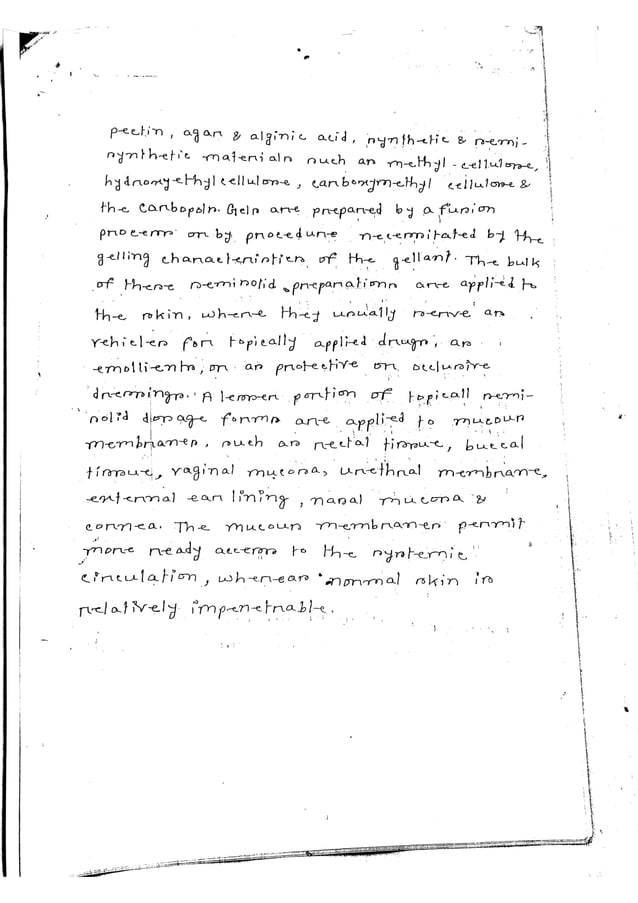 pectin, agar & alginic acid, synthetic & semi-
synthetic materials such as methyl-cellulose,
hydroxyethylcellulose, carboxymethyl cellulose &
the carbopols. Gels are prepared by a fusion
process or by procedure necessitated by the
gelling characteristics of the gellant. The bulk
of these semisolid preparations are applied to
the skin, where they usually serve as
vehicles for topically applied drugs, as
emollients, or as protective or occlusive
dressings. A lesser portion of topicall semi-
solid dosage forms are applied to mucous
membranes, such as rectal tissue, buccal
tissue, vaginal mucosa, urethral membrane,
external ear lining, nasal mucosa &
cornea. The mucous membranes permit
more ready access to the systemic
circulation, whereas normal skin is
relatively impenetrable.